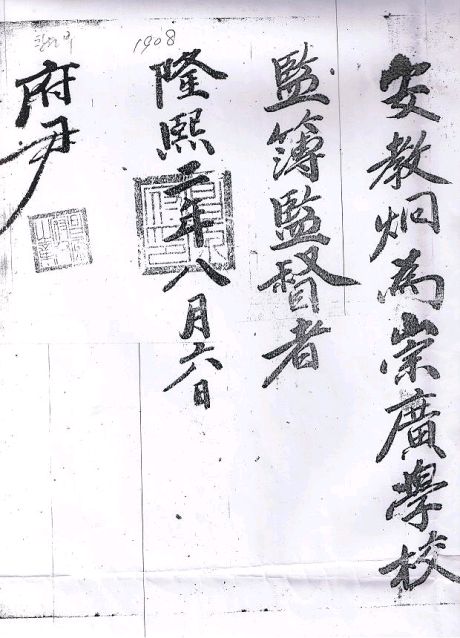 安教炯為崇廣學校
監簿監督者
隆熙二年八月六日
1908
府尹